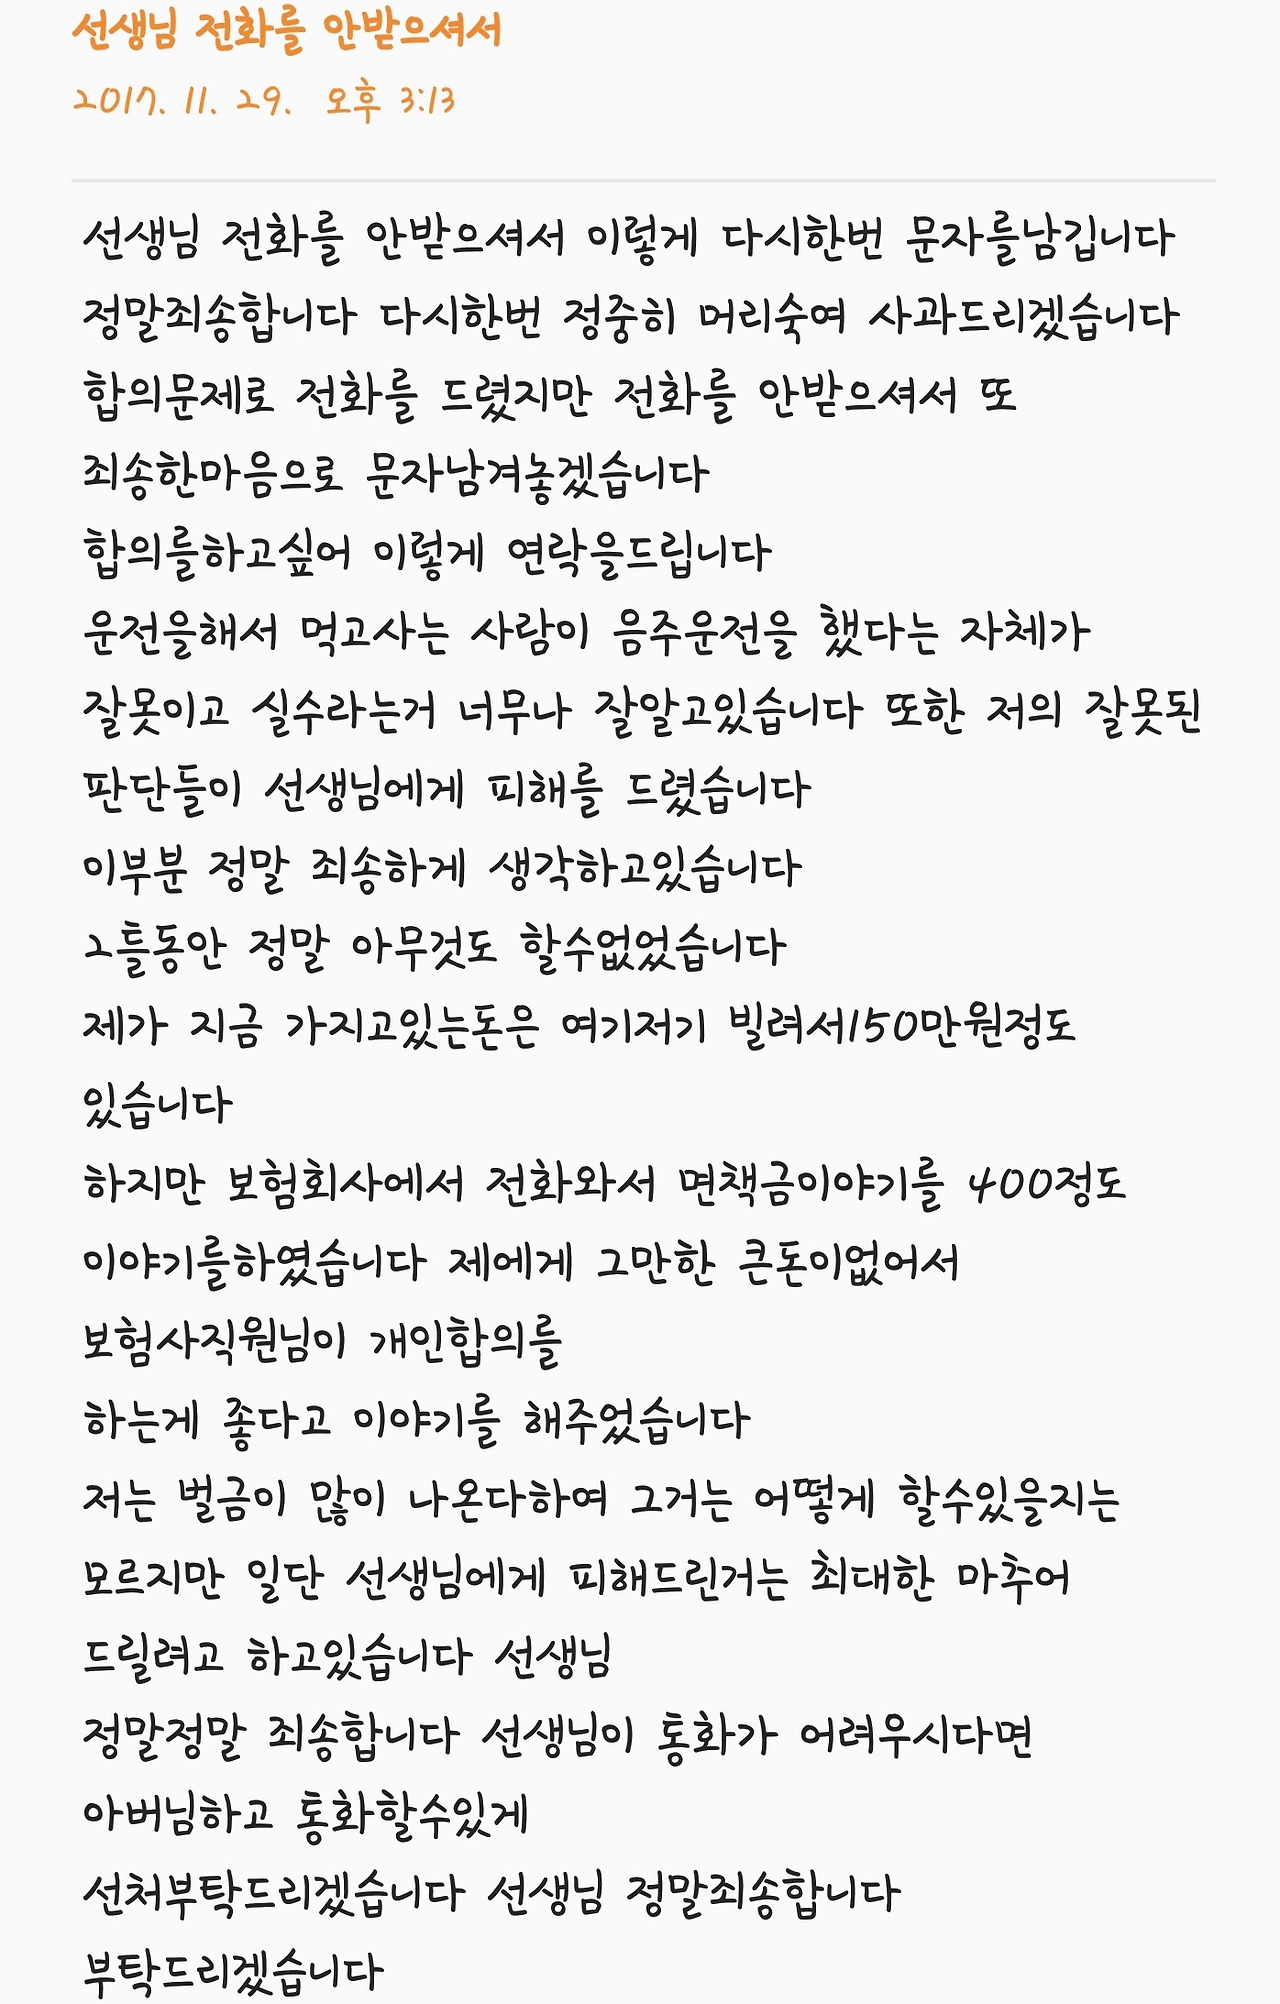 선생님 전화를 안받으셔서
2017. 11. 29. 오후 3:13
선생님 전화를 안받으셔서 이렇게 다시한번 문자를남깁니다
정말죄송합니다 다시한번 정중히 머리숙여 사과드리겠습니다
합의문제로 전화를 드렸지만 전화를 안받으셔서 또
죄송한마음으로 문자남겨놓겠습니다
합의를하고싶어 이렇게 연락을드립니다
운전을해서 먹고사는 사람이 음주운전을 했다는 자체가
잘못이고 실수라는거 너무나 잘알고있습니다 또한 저의 잘못된
판단들이 선생님에게 피해를 드렸습니다
이부분 정말 죄송하게 생각하고있습니다
그틀동안 정말 아무것도 할수없었습니다
제가 지금 가지고있는돈은 여기저기 빌려서150만원정도
있습니다
하지만 보험회사에서 전화와서 면책금이야기를 400정도
이야기를하였습니다 제에게 그만한 큰돈이없어서
보험사직원님이 개인합의를
하는게 좋다고 이야기를 해주었습니다
저는 벌금이 많이 나온다하여 그거는 어떻게 할수있을지는
모르지만 일단 선생님에게 피해드린거는 최대한 마추어
드릴려고 하고있습니다 선생님
정말정말 죄송합니다 선생님이 통화가 어려우시다면
아버님하고 통화할수있게
선처부탁드리겠습니다 선생님 정말죄송합니다
부탁드리겠습니다